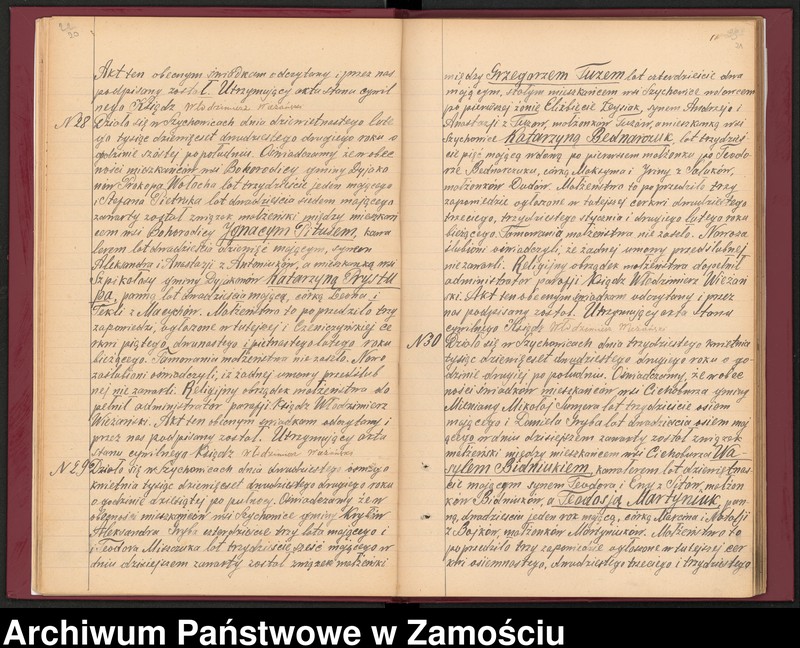 22
20
Akt ten obecnym świadkom odczytany i przez nas
podpisany został. Utrzymujący akta stanu cywil-
nego Ksiądz Włodzimierz
N28 Działo się w Szychowicach dnia dziewiętnastego lute-
go tysiąc dziewięćset dwudziestego drugiego roku o
godzinie szóstej po południu. Oświadczamy że w obec-
ności mieszkańców wsi Bohorodicy gminy Dyjako-
nów Prokopa Wołocha lat trzydzieście jeden mającego
i Stefana Pietruka lat dwadzieścia siedem mającego
zawarty został związek małżeński między mieszkań-
cem wsi Bohorodicy Ignacym Pitusem, kawa-
lerem lat dwadzieścia dziewięć mającym, synem
Aleksandra i Anastazji z Antoniuków, a mieszkanką wsi
Szpikołosy gminy Dyjakonów Katarzyną Prystu-
pa, panną lat dwadzieścia mającą, córką Leona i
Tekli z Macyków. Małżeństwo to poprzedziło trzy
zapowiedzi, ogłoszone w tutejszej i Czeniczyńskiej ce-
rkwi piątego, dwunastego i piętnastego lutego roku
bieżącego. Tamowania małżeństwa nie zaszło. Nowo
zaślubieni oświadczyli, iż żadnej umowy przedślub-
nej nie zawarli. Religijny obrządek małżeństwa do-
pełnił administrator parafji Ksiądz Włodzimierz
Wieżański. Akt ten obecnym świadkom odczytany i
przez nas podpisany został. Utrzymujący akta
stanu cywilnego Ksiądz Włodzimierz
N29 Działo się w Szychowicach dnia dwudziestego ósmego
kwietnia tysiąc dziewięćset dwudziestego drugiego roku
o godzinie dziesiątej po północy. Oświadczamy, że w
obecności mieszkańców wsi Szychowice gminy Kryłów
Aleksandra Hryba czterdzieście trzy lata mającego i
i Teodora Miszczuka lat trzydzieście sześć mającego w
dniu dzisiejszem zawarty został związek małżeński
21
między Grzegorzem Tuzem lat czterdzieście dwa
mającym, stałym mieszkańcem wsi Szychowice wdowcem
po pierwszej żonie Elżbiecie synem Andrzeja i
Anastazji z małżonków Tuzów, a mieszkanką wsi
Szychowice Katarzyną Bednarczuk, lat trzydzieś-
cie pięć mającą wdową po pierwszem małżonku, po Teodo-
rze Bednarczuku, córką Maksyma i Iryny z
małżonków Dudów. Małżeństwo to poprzedziło trzy
zapowiedzie ogłoszone w tutejszej cerkwi dwudziestego
trzeciego, trzydziestego stycznia i drugiego lutego roku
bieżącego. Tamowania małżeństwa nie zaszło. Nowoza-
ślubieni oświadczyli, że żadnej umowy przedślubnej
nie zawarli. Religijny obrządek małżeństwa dopełnił
administrator parafji Ksiądz Włodzimierz Wieżań-
ski. Akt ten obecnym świadkom odczytany i przez
nas podpisany został. Utrzymujący akta stanu
cywilnego Ksiądz Włodzimierz
N30 Działo się w Szychowicach dnia trzydziestego kwietnia
tysiąc dziewięćset dwudziestego drugiego roku o go-
dzinie drugiej po południu. Oświadczamy, że w obec-
ności świadków mieszkańców wsi Ciehoburza gminy
Mieniany Mikołaj lat trzydzieście osiem
mającego i Hryba lat dwadzieścia osiem ma-
jącego w dniu dzisiejszem zawarty został związek
małżeński między mieszkańcem wsi Ciehoburza Wa-
sylem Bidniukiem, kawalerem lat dziewiętnaś-
cie mającym synem Teodora i małżon-
ków Bidniuków, a Teodosją Martyniuk, pan-
ną, dwadzieścia jeden rok mającą, córką Marcina i Natalji
z Bojków, małżonków Martyniuków. Małżeństwo to
poprzedziło trzy zapowiedzie ogłoszone w tutejszej cer-
kwi osiemnastego, dwudziestego trzeciego i trzydziestego
Archiwum Państwowe w Zamościu